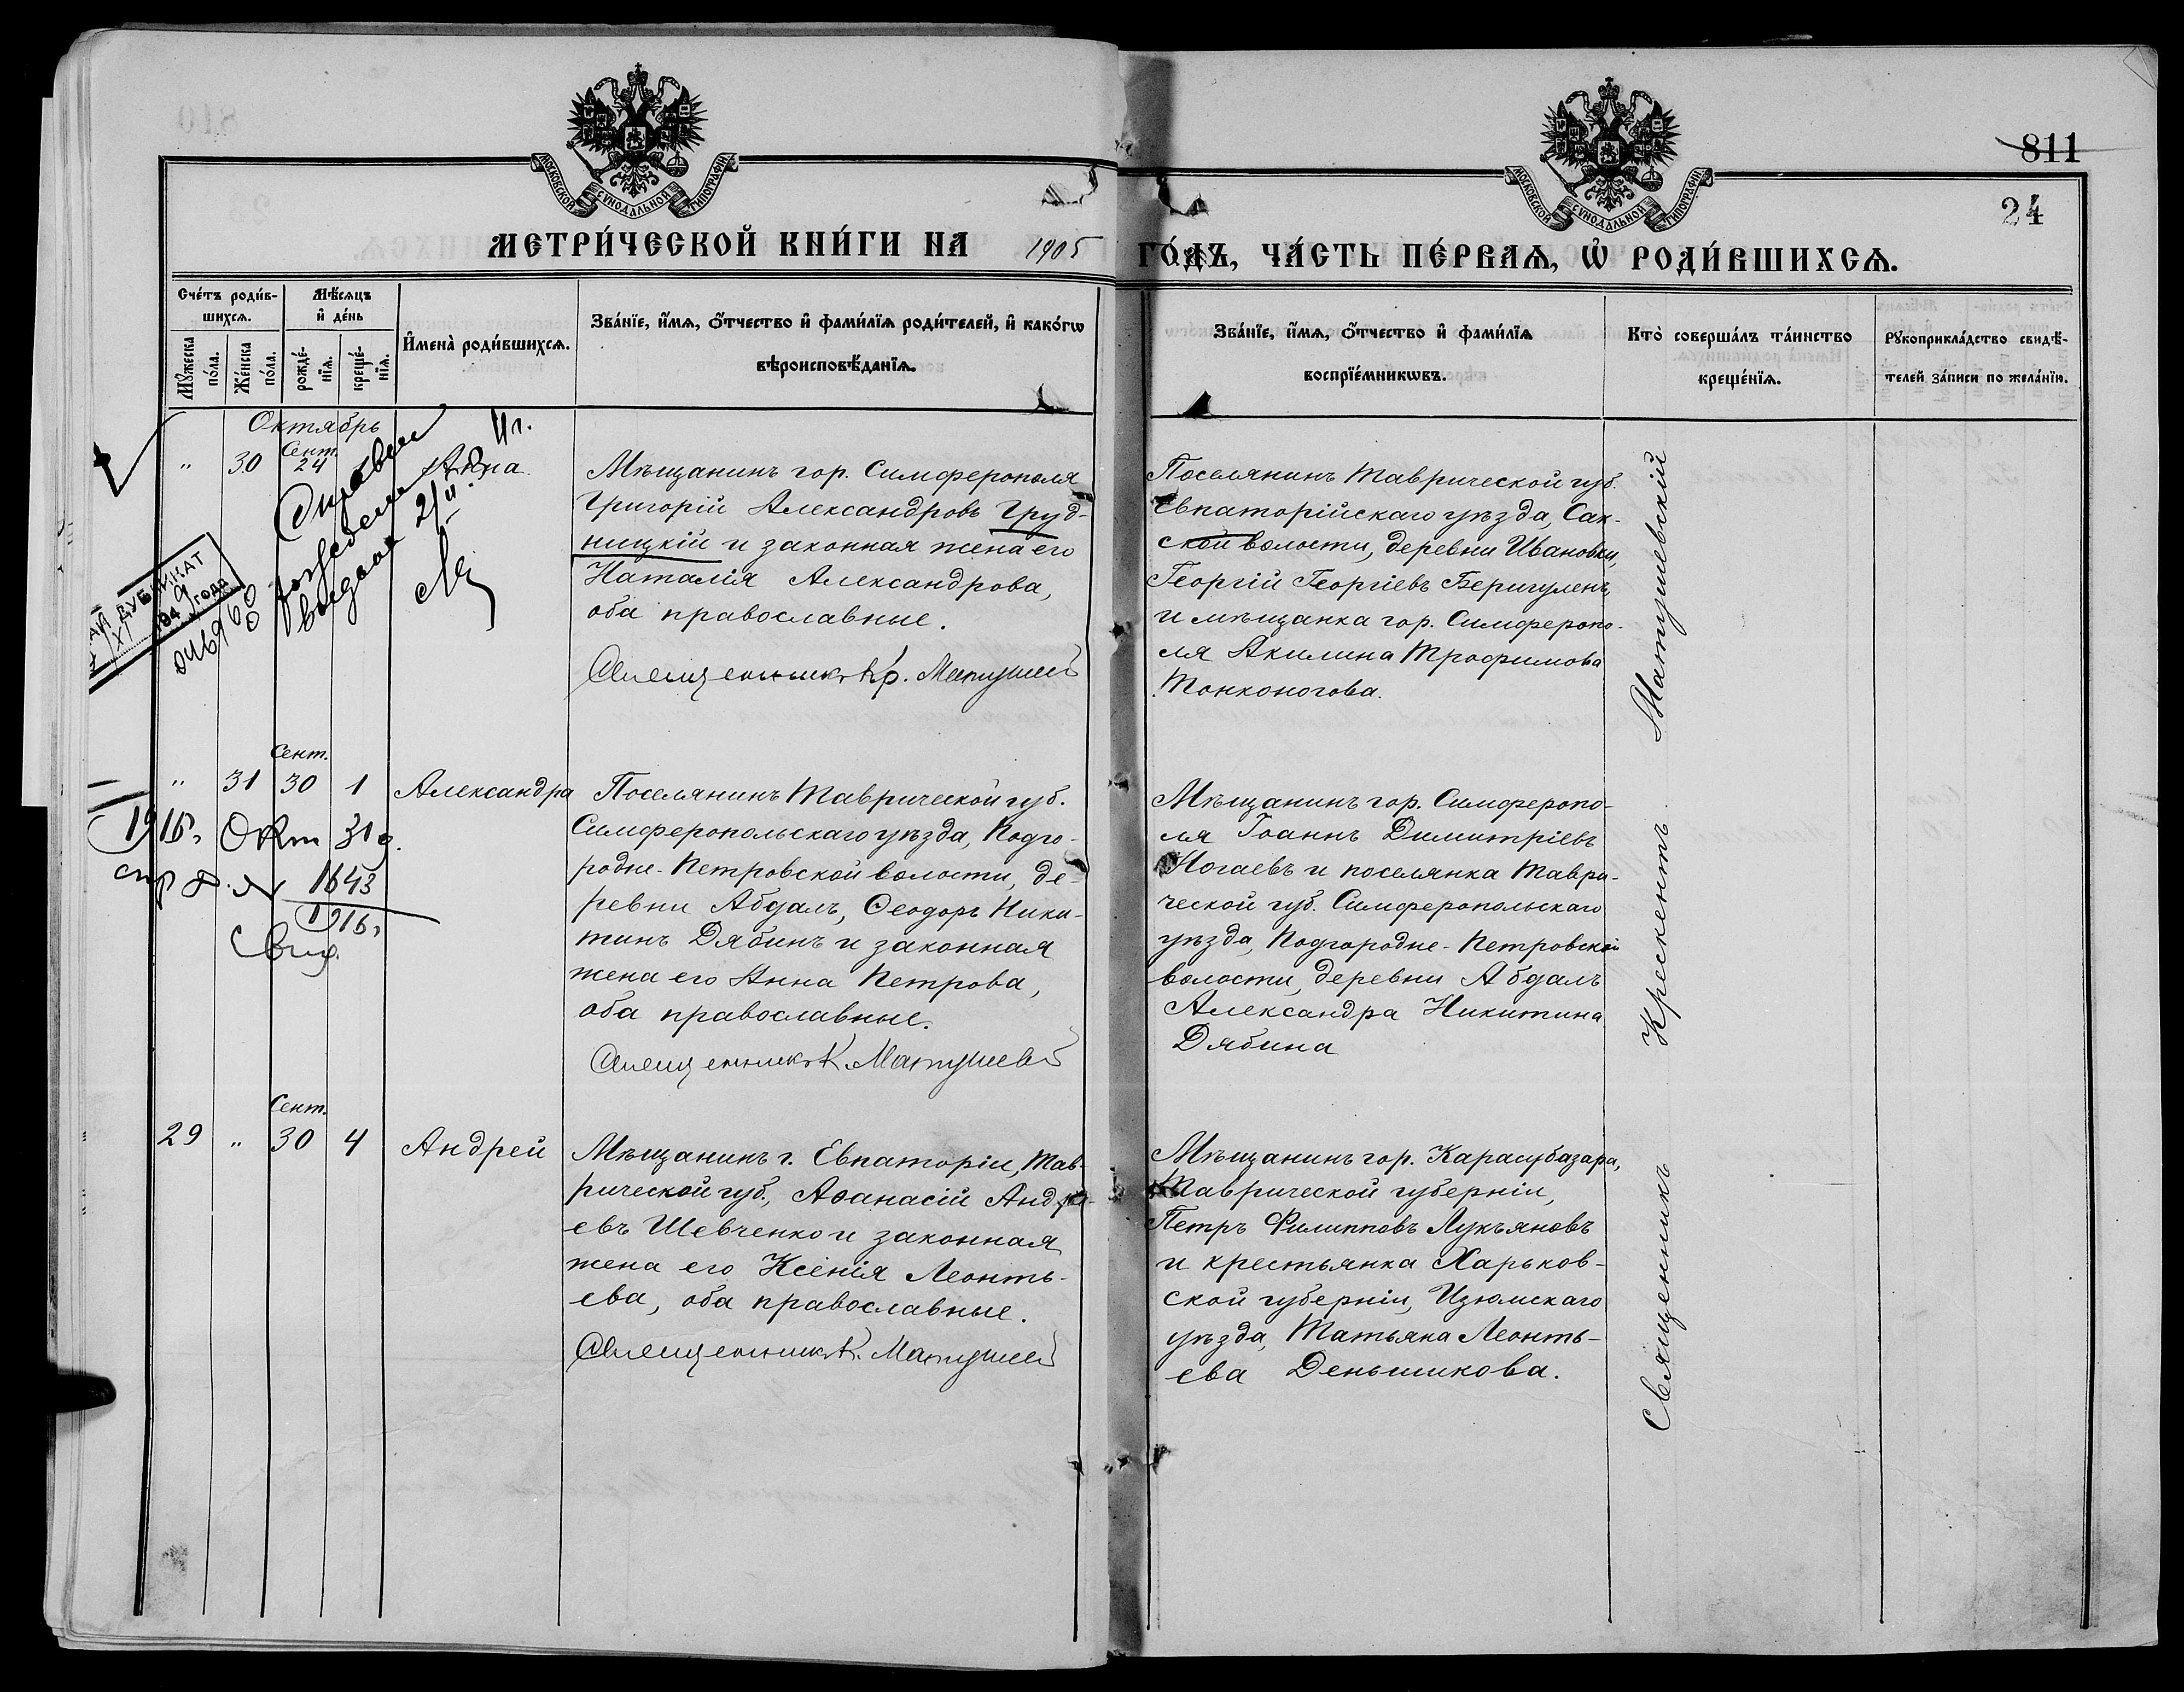 811
24
МОСКОВСКОЙ СѴНОДАЛЬНОЙ ТИПОГРАФІИ
МОСКОВСКОЙ СѴНОДАЛЬНОЙ ТИПОГРАФІИ
МЕТРИ́ЧЕСКОЙ КНИ́ГИ НА 1905 ГО́ДЪ, ЧА́СТЬ ПЕ́РВАѦ, Ѡ҆ РОДИ́ВШИХСѦ.
Сче́тъ роди́в-
шихсѧ.
Мꙋ́жеска
по́ла.
Же́нска
по́ла.
Мѣ́сѧцъ
и҆ де́нь
рожде́-
нїѧ.
креще́-
нїѧ.
И҆мена̀ роди́вшихсѧ.
Зва́нїе, и҆́мѧ, ѻ҆́тчество и҆ фами́лїѧ роди́телей, и҆ како́гѡ
вѣроисповѣ́данїѧ.
Зва́нїе, и҆́мѧ, ѻ҆́тчество и҆ фами́лїѧ
воспрїе́мникѡвъ.
Кто̀ соверша́лъ та́инство
креще́нїѧ.
Рꙋкоприкла́дство свидѣ́-
телей за́писи по жела́нїю.
Октябрь
" 30 Сент. 24
Анна
Мѣщанинъ гор. Симферополя
Григорій Александровъ Груд-
ницкій и законная жена его
Наталія Александрова,
оба православные.
Священникъ Кр. Матушев
Поселянинъ Таврической губ.
Евпаторійскаго уѣзда, Сак-
ской волости, деревни Ивановки,
Георгій Георгіевъ Беригуленъ,
и мѣщанка гор. Симферопо-
ля Акилина Трофимова
Тонконогова.
ДУБЛИКАТ
194 года
рождении
выдана 2/II.
Сент.
" 31 30 1 Александра
Поселянинъ Таврической губ.
Симферопольскаго уѣзда, Подго-
родне-Петровской волости, де-
ревни Абдалъ, Ѳеодоръ Ники-
тинъ Дябинъ и законная
жена его Анна Петрова,
оба православные.
Священникъ К. Матушев
Мѣщанинъ гор. Симферопо-
ля Іоаннъ Димитріевъ
Ногаевъ и поселянка Таври-
ческой губ. Симферопольскаго
уѣзда, Подгородне-Петровской
волости, деревни Абдалъ
Александра Никитина
Дябина
1916 Окт 31 д.
1643
1916
Сент.
29 " 30 4 Андрей
Мѣщанинъ г. Евпаторіи, Тав-
рической губ., Аѳанасій Андре-
евъ Шевченко и законная
жена его Ксенія Леонть-
ева, оба православные.
Священникъ К. Матушев
Мѣщанинъ гор. Карасубазара,
Таврической губерніи,
Петръ Филипповъ Лукъяновъ
и крестьянка Харьков-
ской губерніи, Изюмскаго
уѣзда, Татьяна Леонть-
ева Деньшикова.
Священникъ Крескентъ Матушевскій